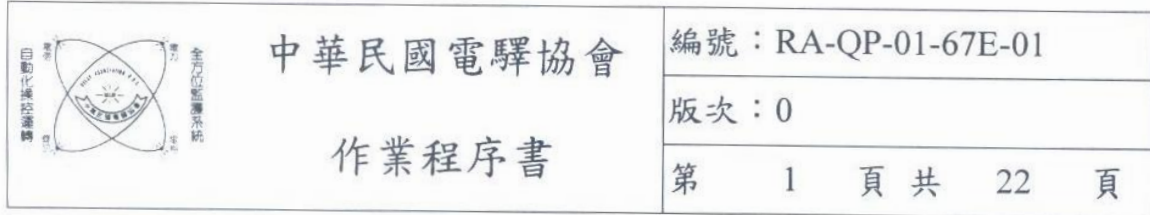 自動化操控運轉
全方位監護系統
中華民國電驛協會
作業程序書
編號：RA-QP-01-67E-01
版次：0
第 1 頁 共 22 頁